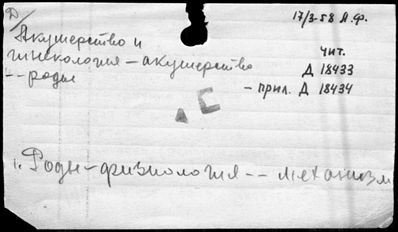 Д/
17/3-58 А.Ф.
Акушерство и
гинекология – акушерство
-- роды
чит.
Д 18433
– прил. Д 18434
1. Роды – физиология -- механизм